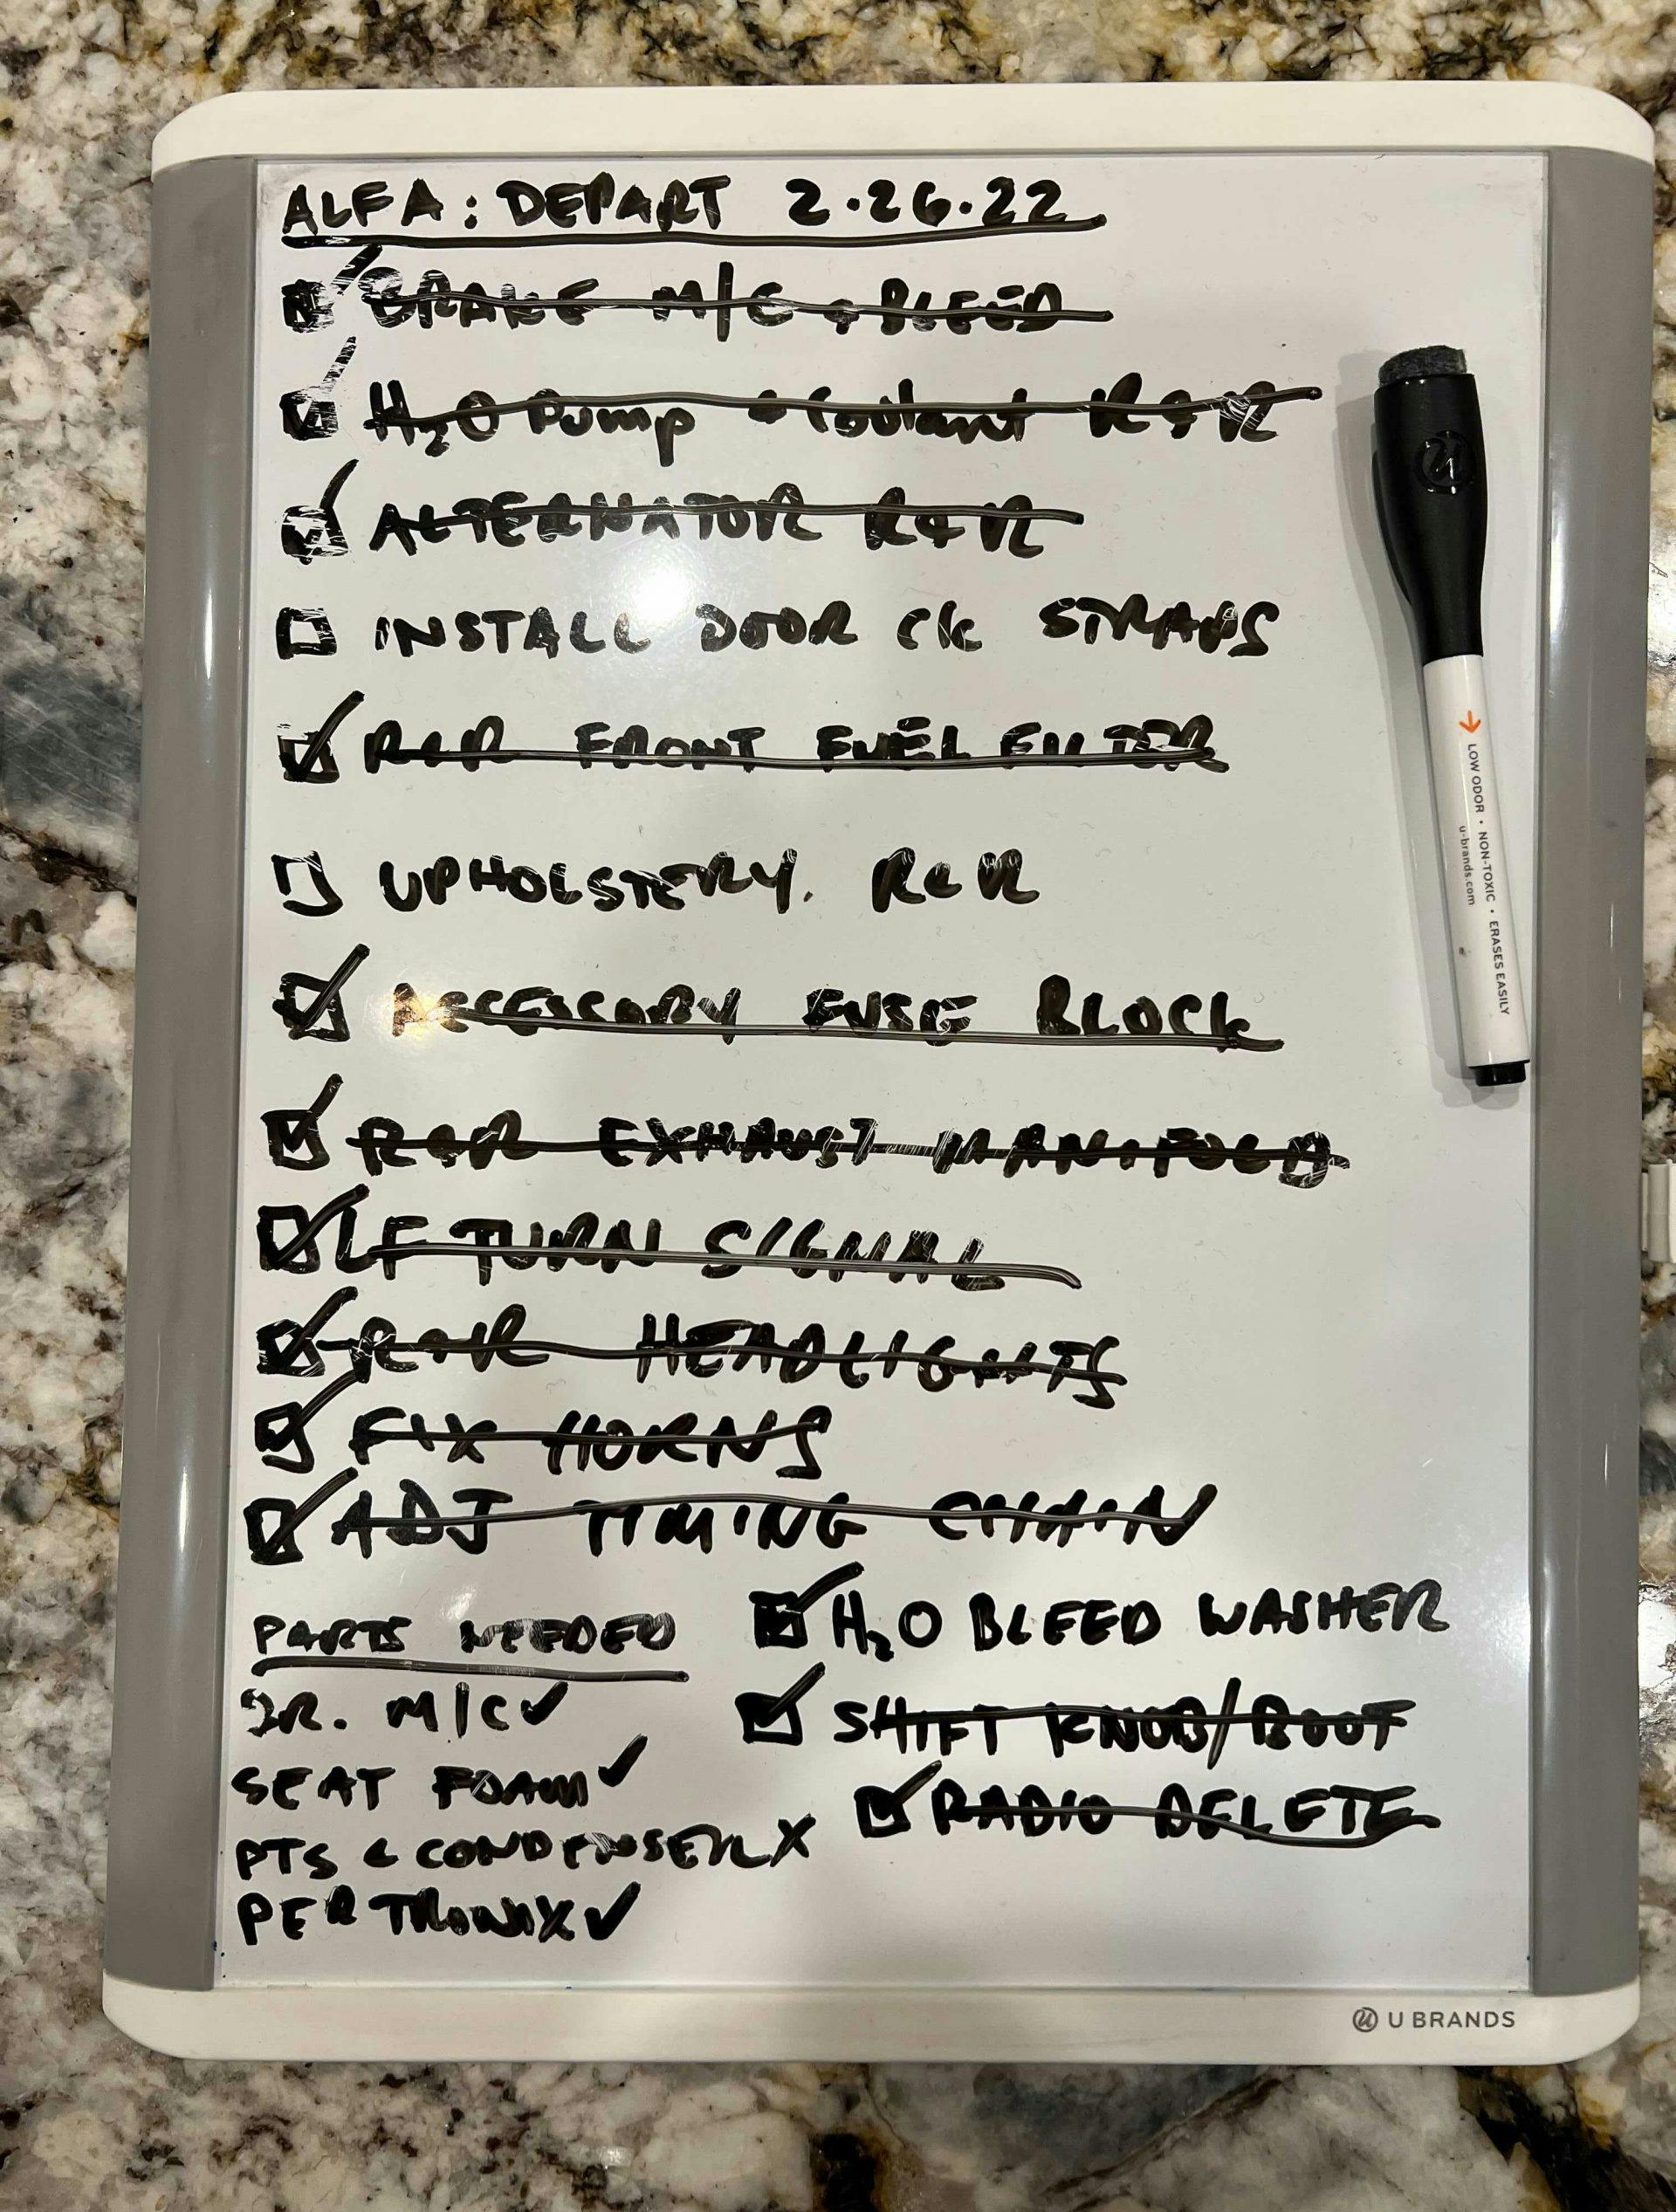 ALFA: DEPART 2.26.22
BRAKE M/C & BLEED
H₂O Pump & Coolant R&R
ALTERNATOR R&R
INSTALL DOOR CK STRAPS
R&R FRONT FUEL FILTER
UPHOLSTERY. R&R
ACCESSORY FUSE BLOCK
R&R EXHAUST MANIFOLD
LF TURN SIGNAL
R&R HEADLIGHTS
FIX HORNS
ADJ TIMING CHAIN
PARTS NEEDED
BR. M/C ✓
SEAT FOAM ✓
PTS & CONDENSER X
PERTRONIX ✓
H₂O BLEED WASHER
SHIFT KNOB/BOOT
RADIO DELETE
LOW ODOR • NON-TOXIC • ERASES EASILY
u-brands.com
U BRANDS